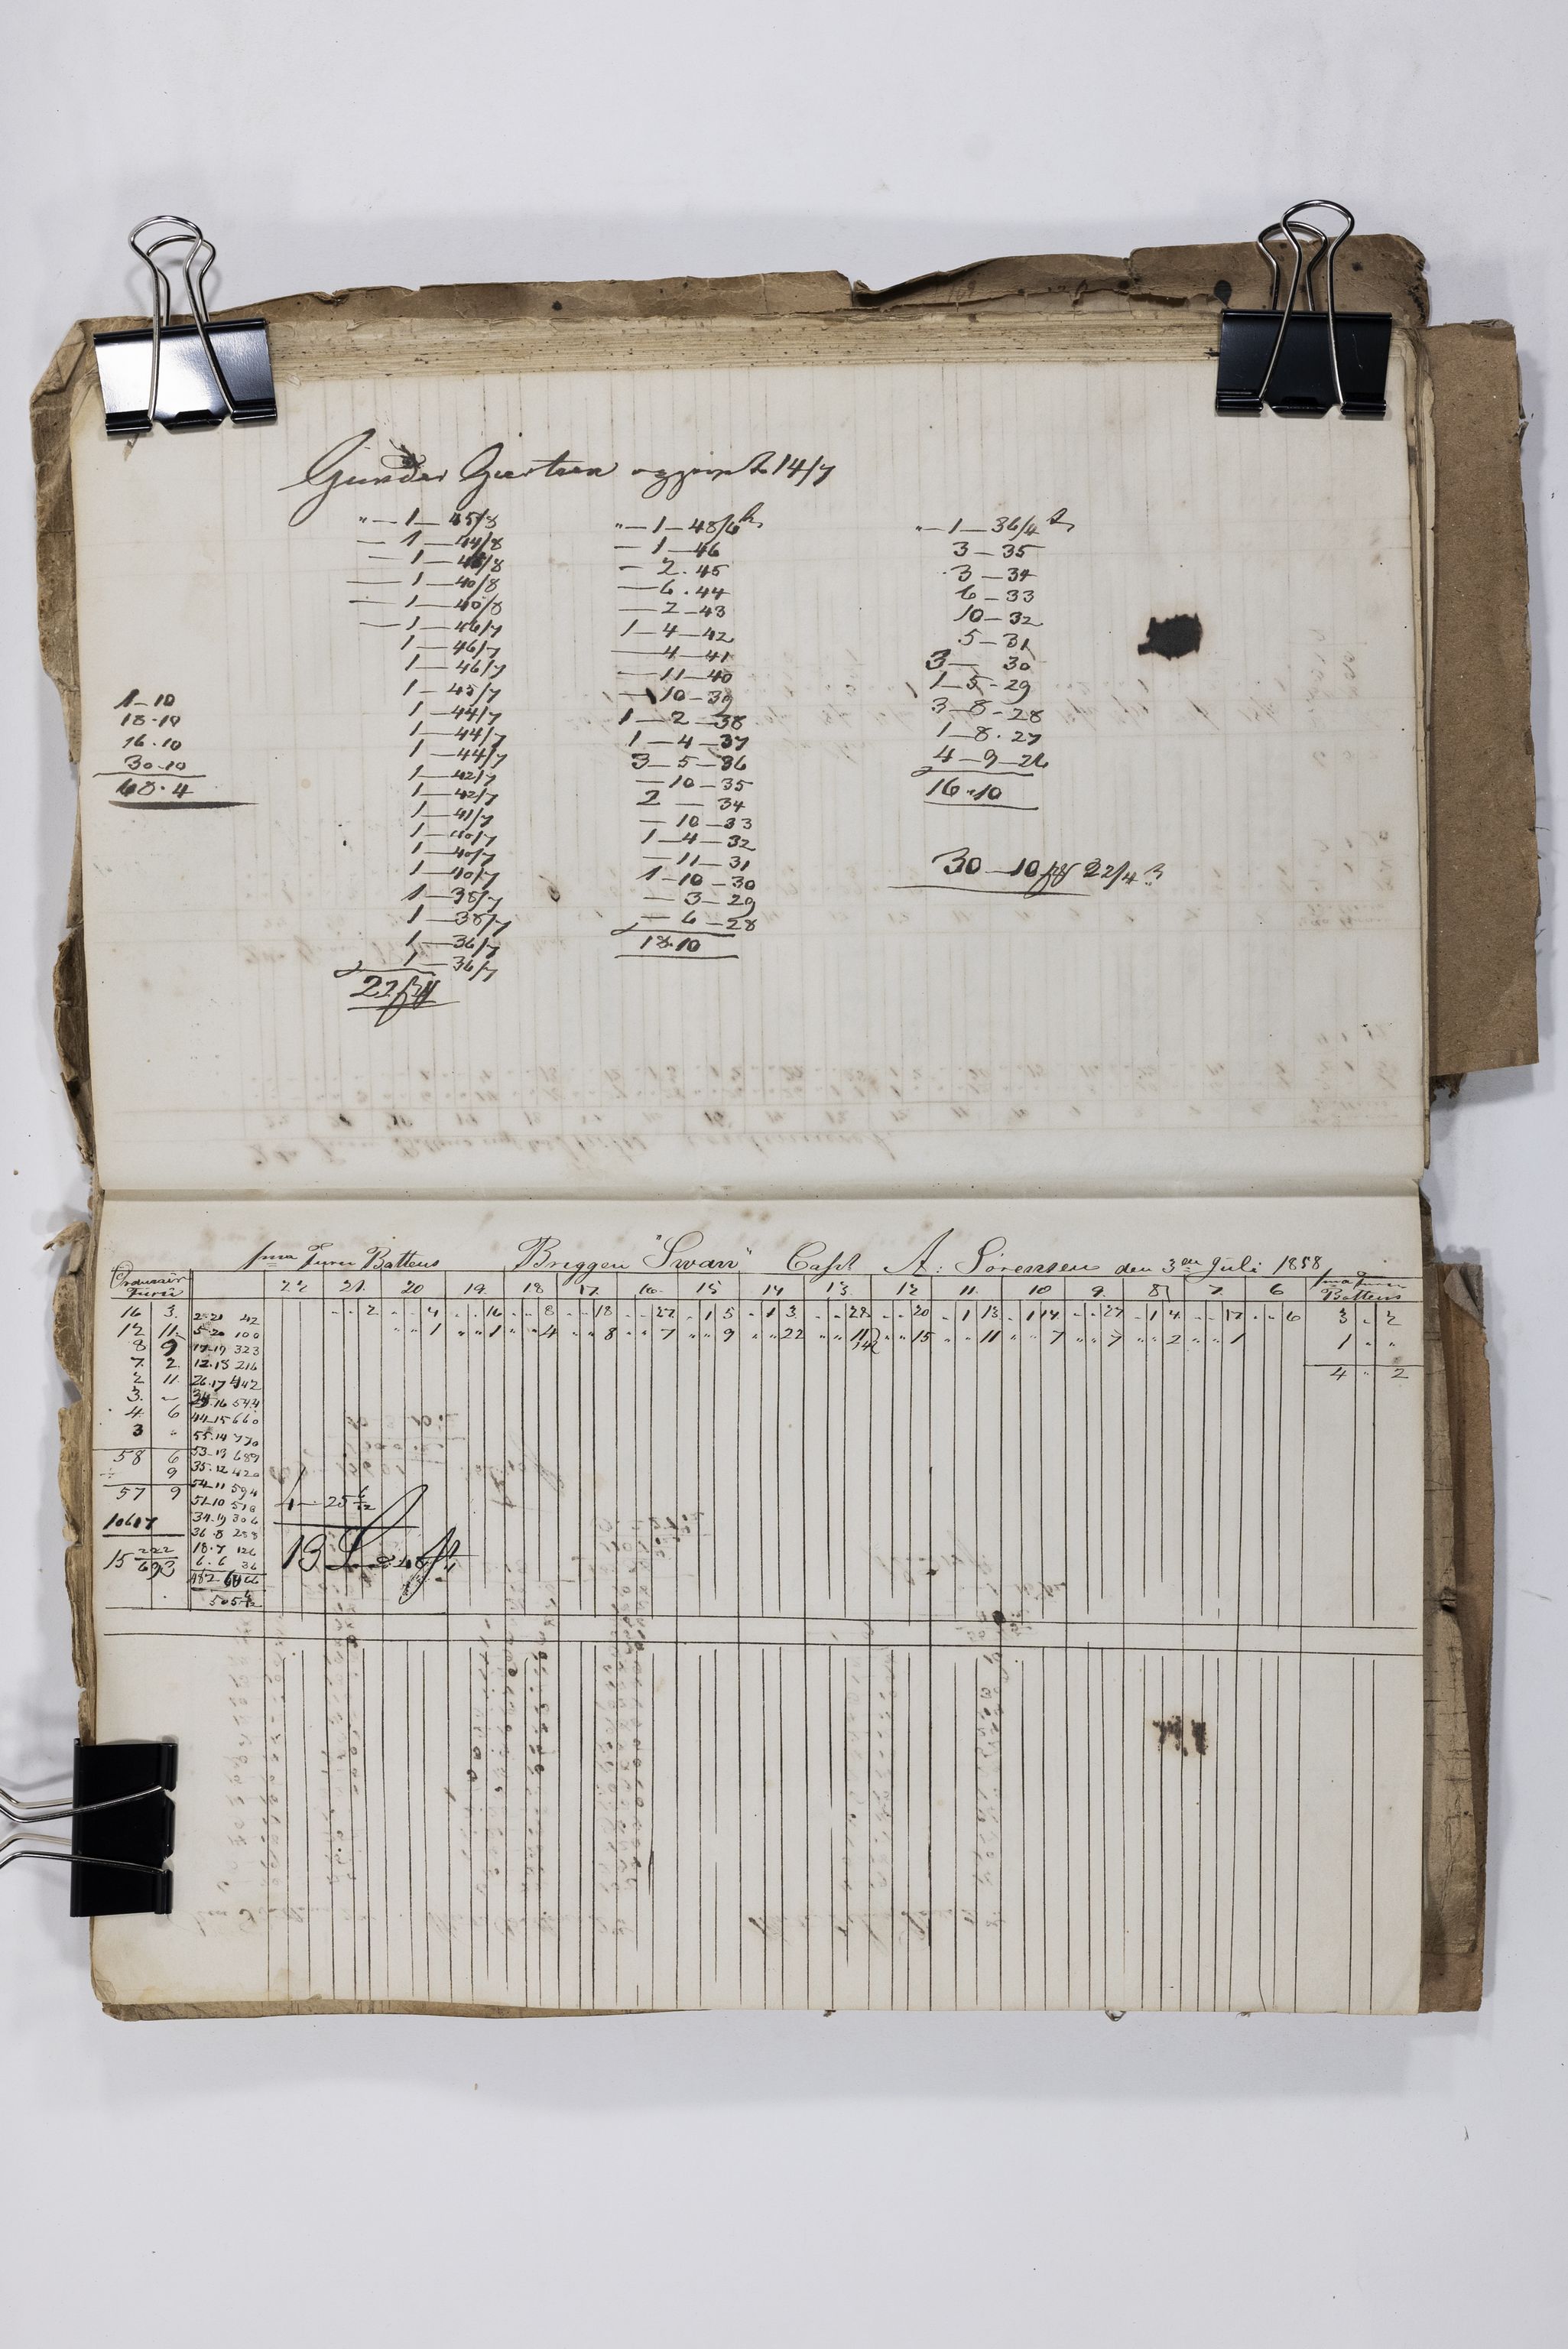 Gunder Giertsen 14/7
" — 1 — 45/8
— 1 — 44/8
— 1 — /8
— 1 — 40/8
— 1 — 40/8
— 1 — 46/7
1 — 46/7
1 — 46/7
1 — 45/7
1 — 44/7
1 — 44/7
1 — 44/7
1 — 42/7
1 — 42/7
1 — 41/7
1 — 40/7
1 — 40/7
1 — 40/7
1 — 38/7
1 — 38/7
1 — 36/7
1 — 36/7
22
" — 1 — 48/6
— 1 — 46
— 2 . 45
— 6 . 44
— 2 — 43
1 — 4 — 42
— 4 — 41
— 11 — 40
— 10 — 39
1 — 2 — 38
1 — 4 — 37
3 — 5 — 36
— 10 — 35
2 — 34
— 10 — 33
1 — 4 — 32
— 11 — 31
1 — 10 — 30
— 3 — 29
— 6 — 28
18.10
" — 1 — 36/4
3 — 35
3 — 34
6 — 33
10 — 32
5 — 31
3 — 30
1 — 5 — 29
3 — 8 — 28
1 — 8 . 27
4 — 9 — 26
16.10
30 — 10 22/4
1 — 10
18.10
16.10
30.10
68.4
pma Furu Battens Briggen "Swan" Capt A: Sörensen den 3die Juli 1858
Ordinair Furu 22 21 20 19 18 17 16 15 14 13 12 11 10 9 8 7 6 pma Furu Battens
16 3 2.21 42 - - 2 - - 4 - - 16 - - 8 - - 18 - - 27 - 1 5 - 1 3 - - 28 - - 20 - 1 13 - 1 14 - - 27 - 1 4 - - 17 - - 6 3 - 2
12 11 5.20 100 - - 1 " " 1 " " 4 " " 8 " " 7 " " 9 " " 22 " " 11 " " 15 " " 11 " " 7 " " 7 " " 2 " " 1 1 " "
8 9 17.19 323 4 " 2
7 2 12.18 216
2 11 26.17 442
3 - 34.16 544
4 6 44.15 660
3 " 55.14 770
53.13 689
58 6 35.12 420
÷ 9 54.11 594
57 9 51.10 510
34.9 306
10617 36.8 288
18.7 126
15 222/693 6.6 36
482
505
1 — 25 6/12
13